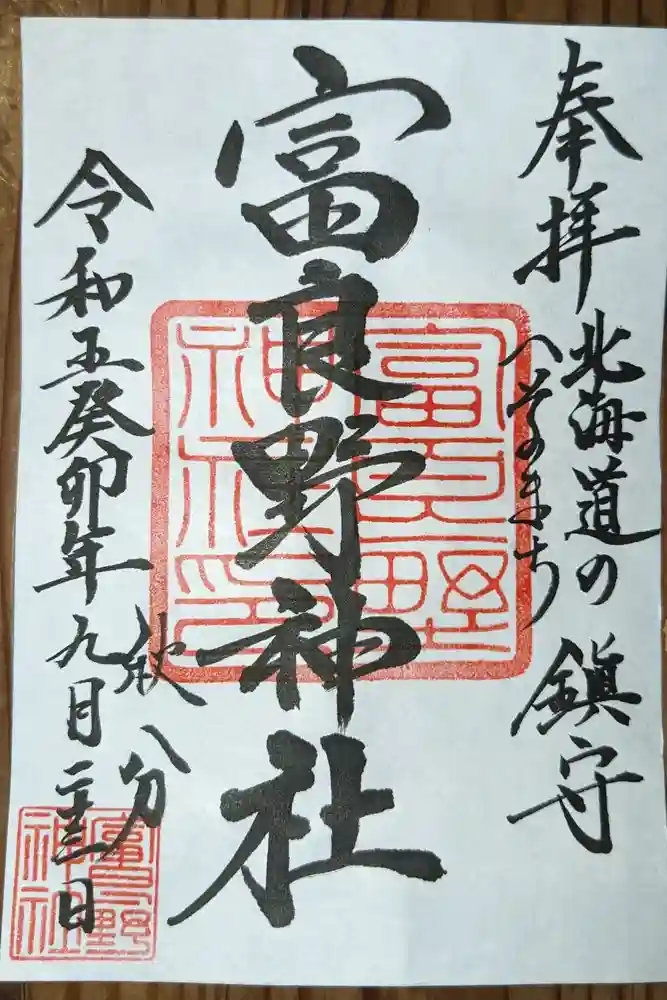 奉拝
北海道の
へそのまち
鎮守
富良野神社
富良野
神社印
令和五癸卯年九月二十三日
秋分
富良野
神社